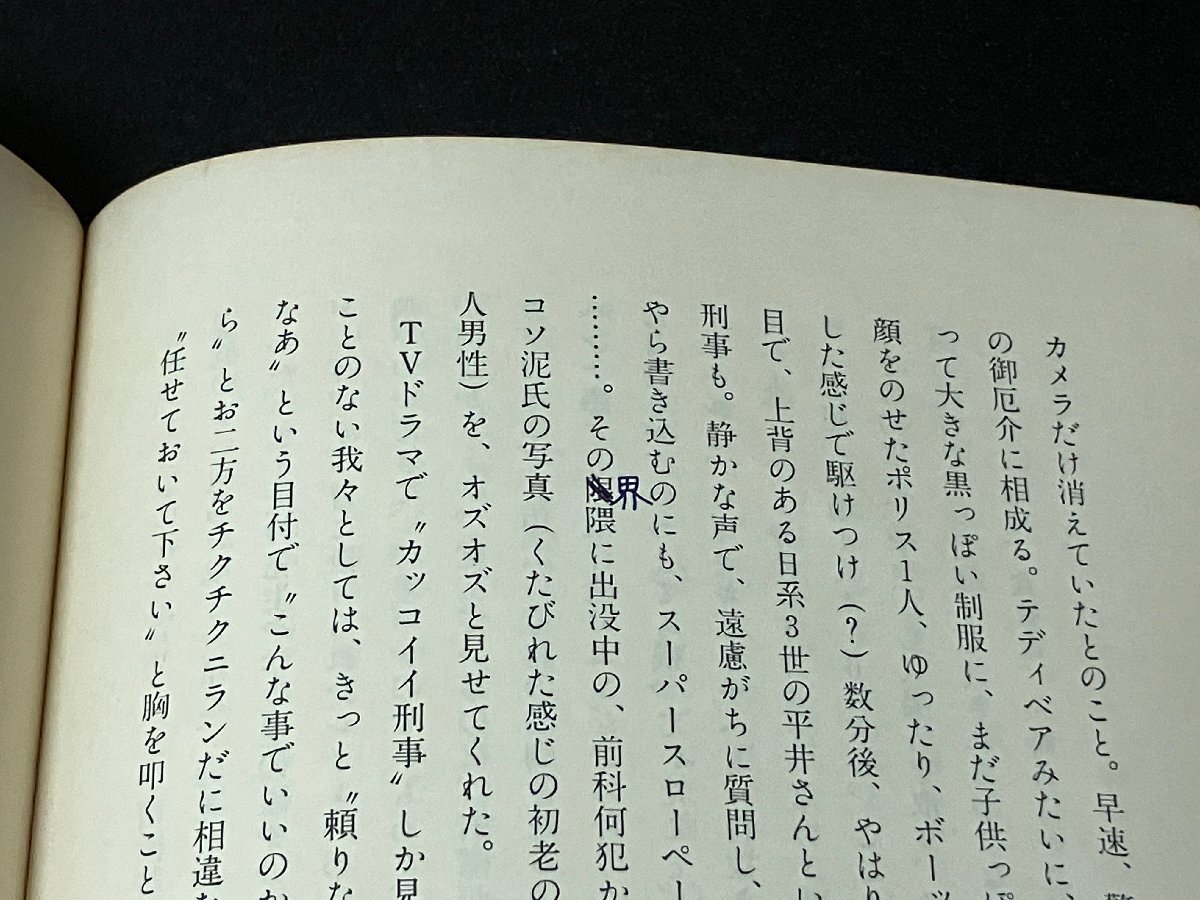 カメラだけ消えていたとのこと。早速、
の御厄介に相成る。テディベアみたいに、
って大きな黒っぽい制服に、まだ子供っぽ
顔をのせたポリス1人、ゆったり、ボーッ
した感じで駆けつけ(?)数分後、やはり
目で、上背のある日系3世の平井さんとい
刑事も。静かな声で、遠慮がちに質問し、
やら書き込むのにも、スーパースローペー
………。その界隈に出没中の、前科何犯か
コソ泥氏の写真(くたびれた感じの初老の
人男性)を、オズオズと見せてくれた。
TVドラマで〝カッコイイ刑事〟しか見
ことのない我々としては、きっと〝頼りな
なあ〟という目付で〝こんな事でいいのか
ら〟とお二方をチクチクニランだに相違な
〝任せておいて下さい〟と胸を叩くこと